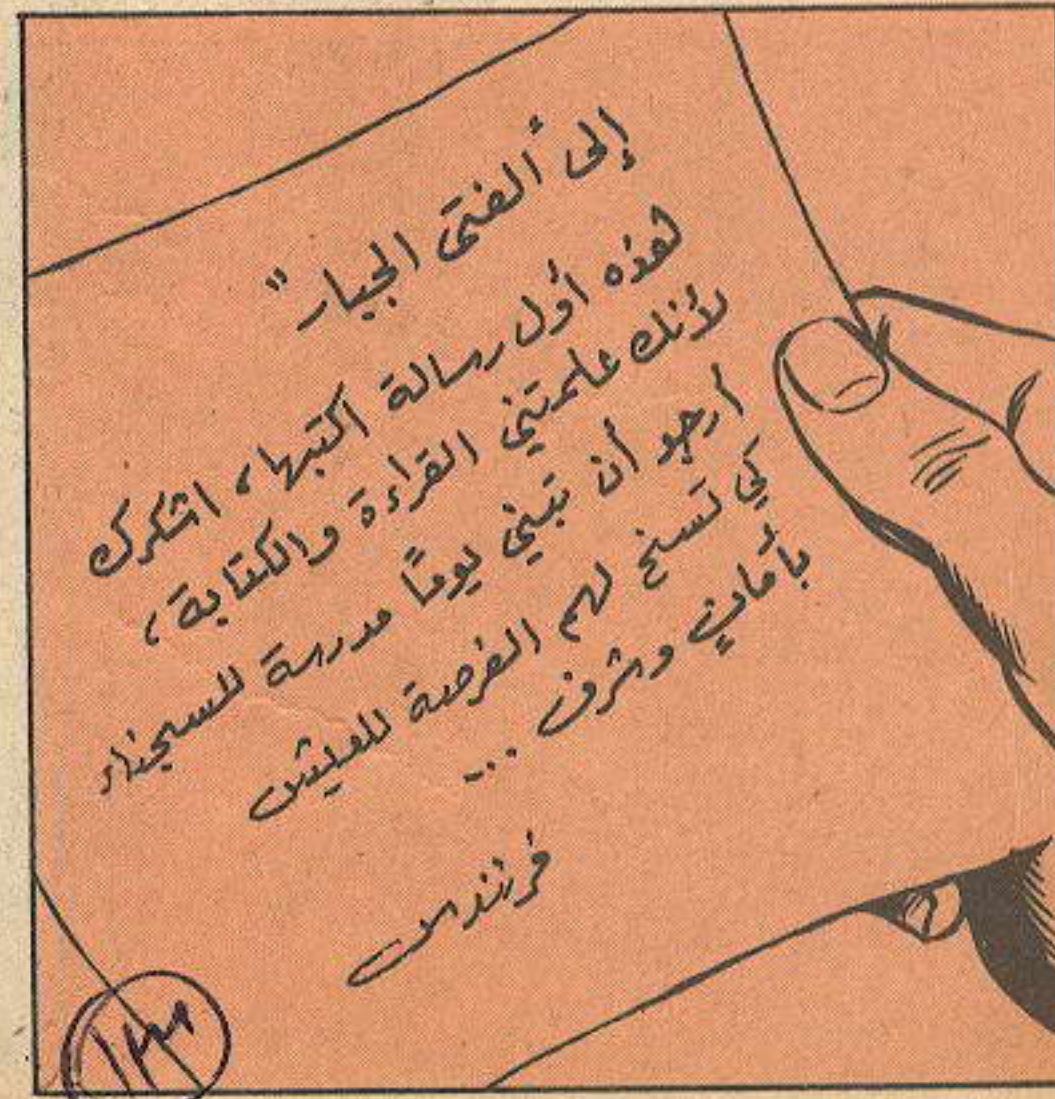 إلى "الفتى الجبار"
هذه أول رسالة اكتبها، اشكرك
لأنك علمتني القراءة والكتابة،
أرجو أن تبني يومًا مدرسة للسجناء
كي تسنح لهم الفرصة للعيش
بأمان وشرف ...
فرنندس